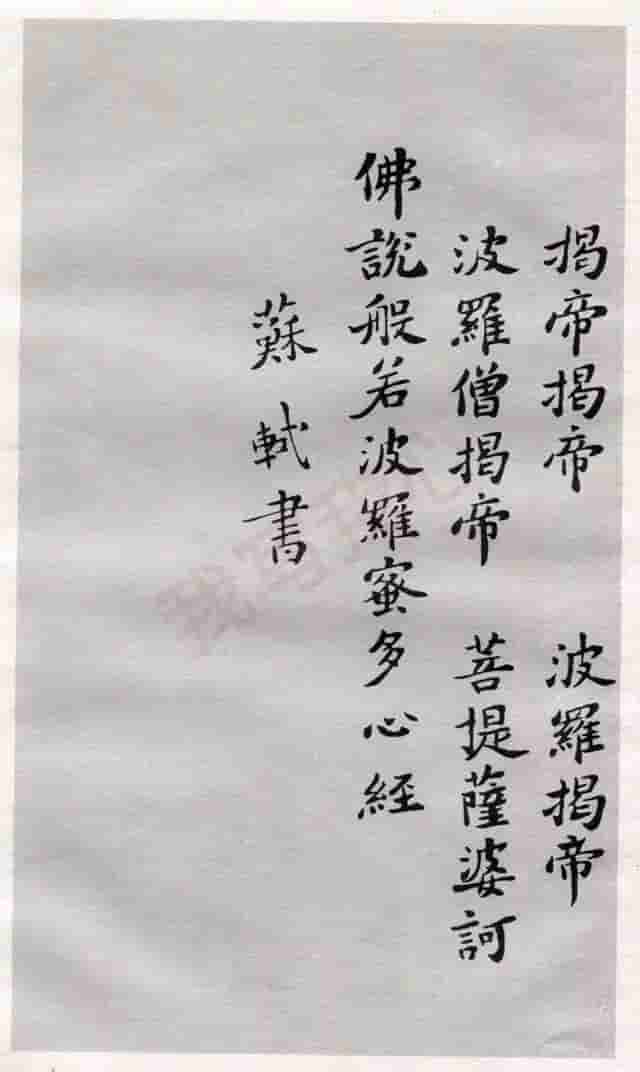 揭帝揭帝　波羅揭帝
波羅僧揭帝　菩提薩婆訶
佛說般若波羅蜜多心經
蘇軾書